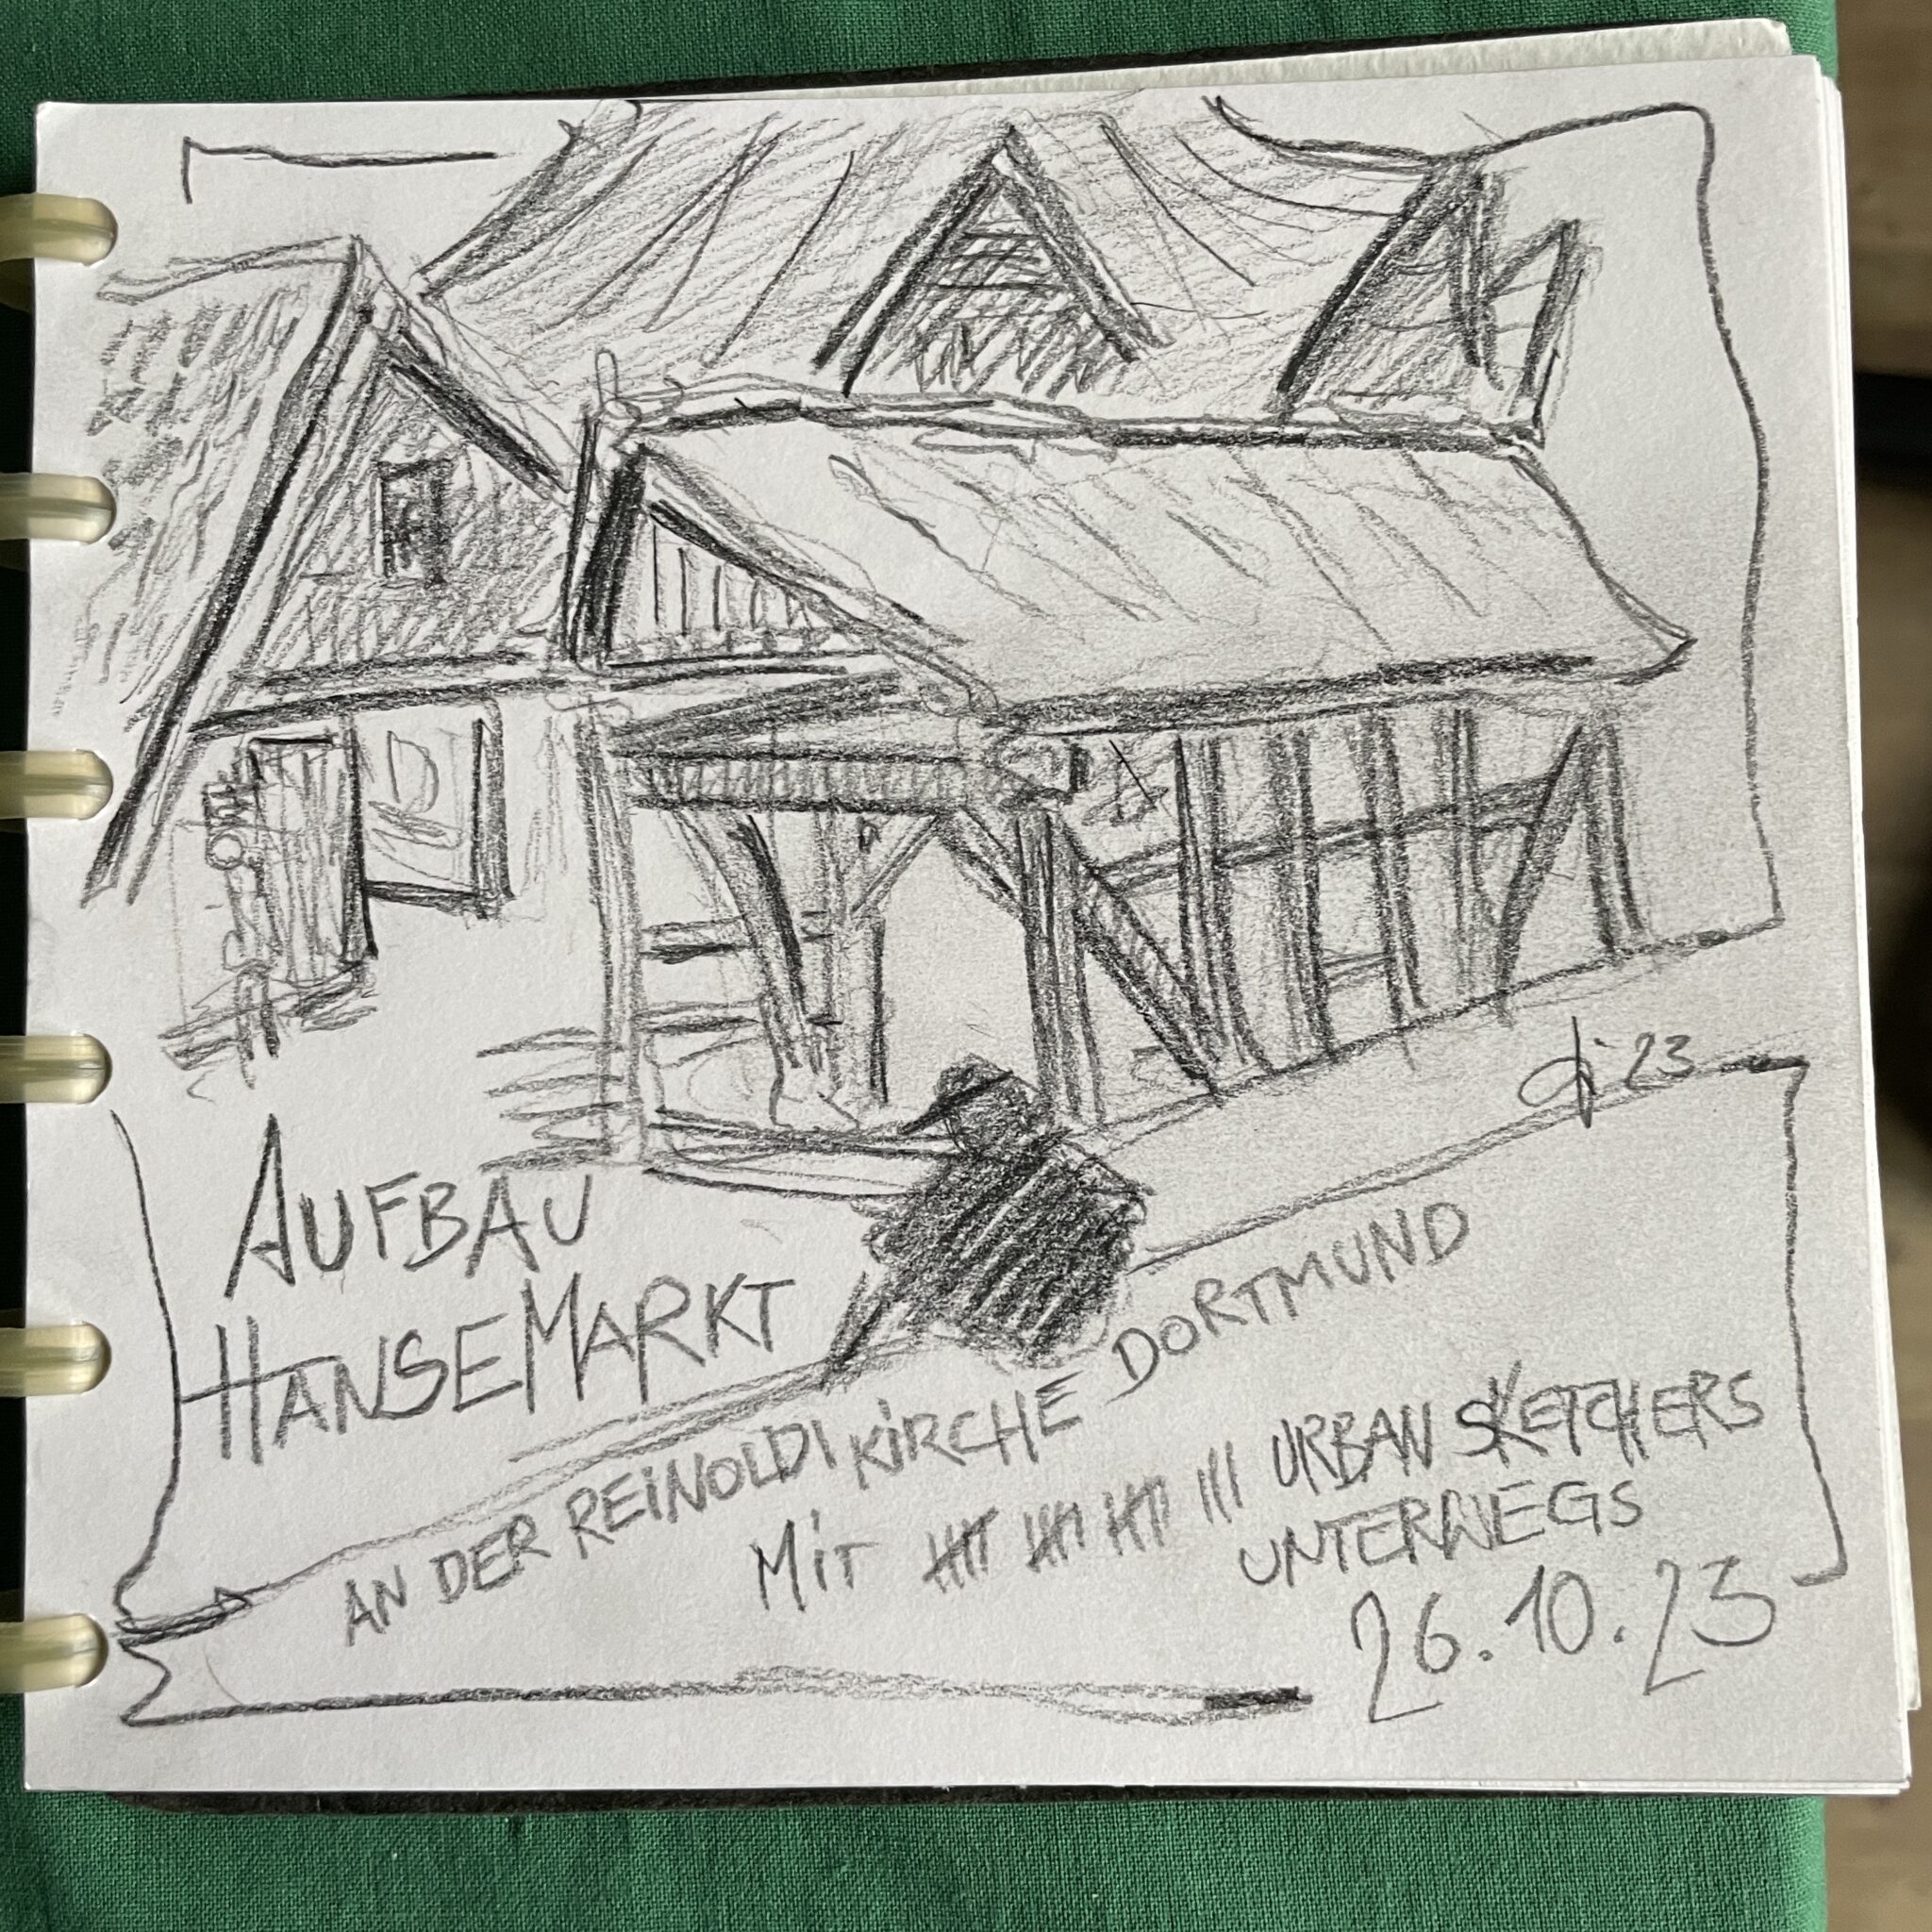 23
AUFBAU
HANSEMARKT
AN DER REINOLDIKIRCHE DORTMUND
MIT 卌 卌 卌 III URBAN SKETCHERS
UNTERWEGS
26.10.23